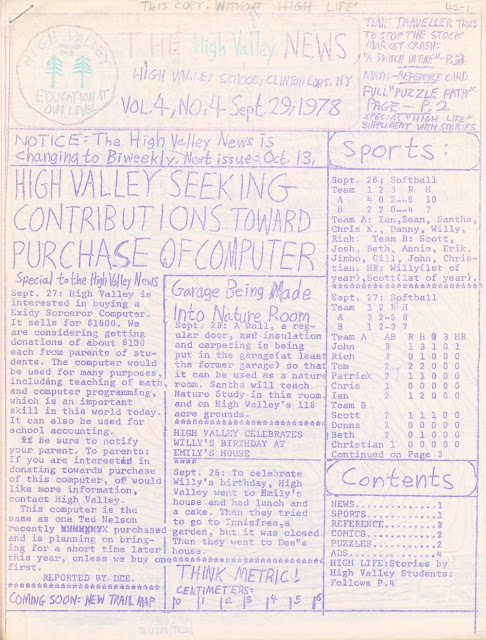 THIS COPY, WITHOUT "HIGH LIFE"
40-1
HIGH VALLEY
EDUCATION AT
OWN LEVEL
THE High Valley NEWS
HIGH VALLEY SCHOOL, CLINTON CORS. NY
VOL. 4, NO. 4 Sept. 29, 1978
TIME TRAVELLER TRIES
TO STOP THE STOCK
MARKET CRASH:
"A SWITCH IN TIME"- P.3
MINI-REFERENCE CARD
FULL "PUZZLE PATH"
PAGE - P. 2
SPECIAL "HIGH LIFE"
SUPPLEMENT WITH STORIES
NOTICE: The High Valley News is
changing to Biweekly. Next issue: Oct. 13,
HIGH VALLEY SEEKING
CONTRIBUTIONS TOWARD
PURCHASE OF COMPUTER
Special to the High Valley News
Sept. 27: High Valley is
interested in buying a
Exidy Sorceror Computer.
It sells for $1500. We
are considering getting
donations of about $100
each from parents of stu-
dents. The computer would
be used for many purposes,
including teaching of math,
and computer programming,
which is an important
skill in this world today.
It can also be used for
school accounting.
Be sure to notify
your parent. To parents:
If you are interested in
donating towards purchase
of this computer, or would
like more information,
contact High Valley.
This computer is the
same as one Ted Nelson
recently purchased
and is planning on bring-
ing for a short time later
this year, unless we buy one
first.
REPORTED BY DEE.
COMING SOON: NEW TRAIL MAP
Garage Being Made
Into Nature Room
Sept. 28: A wall, a reg-
ular door, and insulation
and carpeting is being
put in the garage(at least
the former garage) so that
it can be used as a nature
room. Santha will teach
Nature Study in this room
and on High Valley's 118
acre grounds.
HIGH VALLEY CELEBRATES
WILLY'S BIRTHDAY AT
EMILY'S HOUSE
Sept. 25: To celebrate
Willy's birthday, High
Valley went to Emily's
house and had lunch and
a cake. Then they tried
to go to Innisfree,a
garden, but it was closed.
Then they went to Dee's
house.
THINK METRIC!
CENTIMETERS:
0 1 2 3 4 5 6
Sports:
Sept. 26: Softball
Team 1 2 3 R H
A 4 0 2--6 10
B 2 2 0--4 7
Team A: Ian,Sean, Santha,
Chris K., Danny, Willy,
Rich. Team B: Scott,
Josh, Beth, Annie, Erik,
Jimbo, Gill, John, Chris-
tian. HR: Willy(1st of
year),Scott(1st of year).
Sept. 27: Softball
Team 1 2 R H
A 3 2-5 8
B 1 2-3 7
Team A AB R H 2 3 HR
John 1 3 1 0 1
Rich 3 0 1 0 0 0
Tom 2 2 2 0 0 0
Patrick 2 1 1 0 0 0
Chris 1 0 0 0 0 0
Ian 2 1 2 0 0 0
Team B
Scott 2 1 1 1 0 0
Donna 1 0 0 0 0 0
Beth 2 0 1 0 0 0
Christian 1 0 0 0 0 0
Continued on Page 3
Contents
NEWS............1
SPORTS..........1
REFERENCE.......3
COMICS..........2
PUZZLES.........2
ADS.............4
HIGH LIFE:Stories by
High Valley Students:
Follows P.4